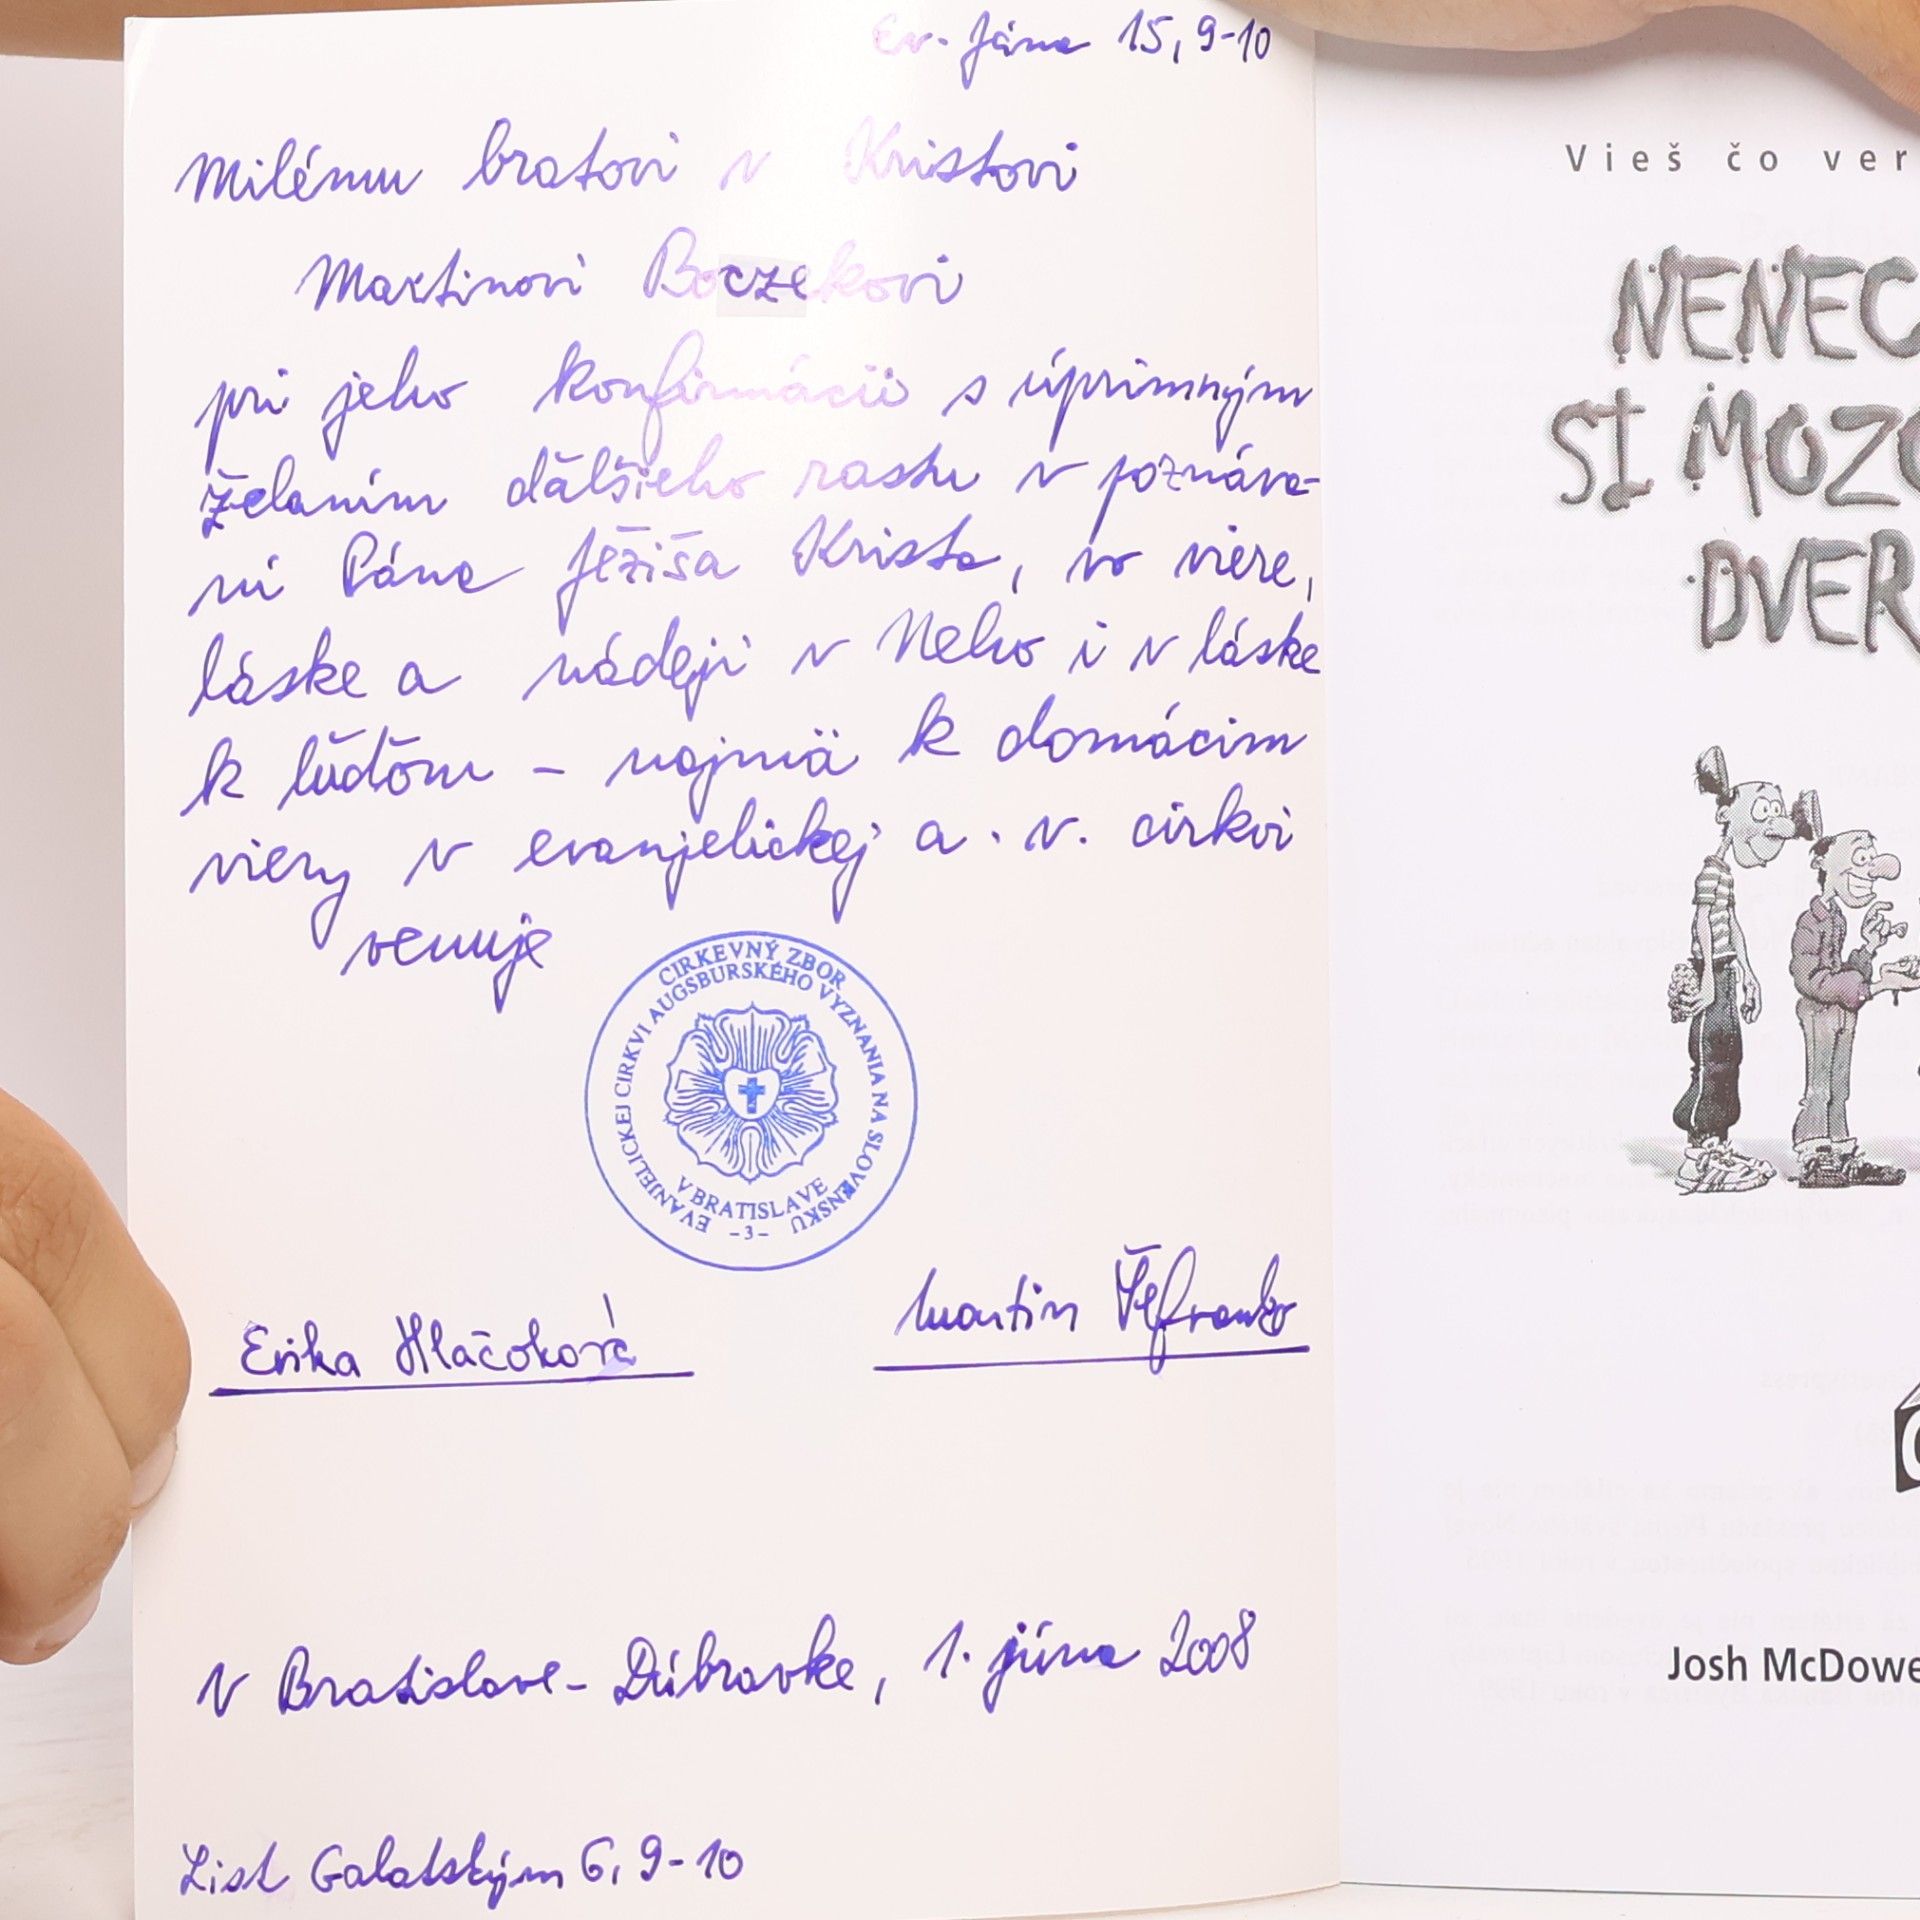 Ev. Jána 15, 9-10
Milému bratovi v Kristovi
Martinovi Boczekovi
pri jeho konfirmácii s úprimným
želaním ďalšieho rastu v poznáva-
ní Pána Ježiša Krista, vo viere,
láske a nádeji v Neho i v láske
k ľuďom – najmä k domácim
viery v evanjelickej a. v. cirkvi
venuje
CIRKEVNÝ ZBOR
EVANJELICKEJ CIRKVI AUGSBURSKÉHO VYZNANIA NA SLOVENSKU
V BRATISLAVE
-3-
Erika Hlačoková
Martin Šefranko
V Bratislave-Dúbravke, 1. júna 2008
List Galatským 6, 9-10
Vieš čo ver
NENEC
SI MOZO
DVER
Josh McDowe